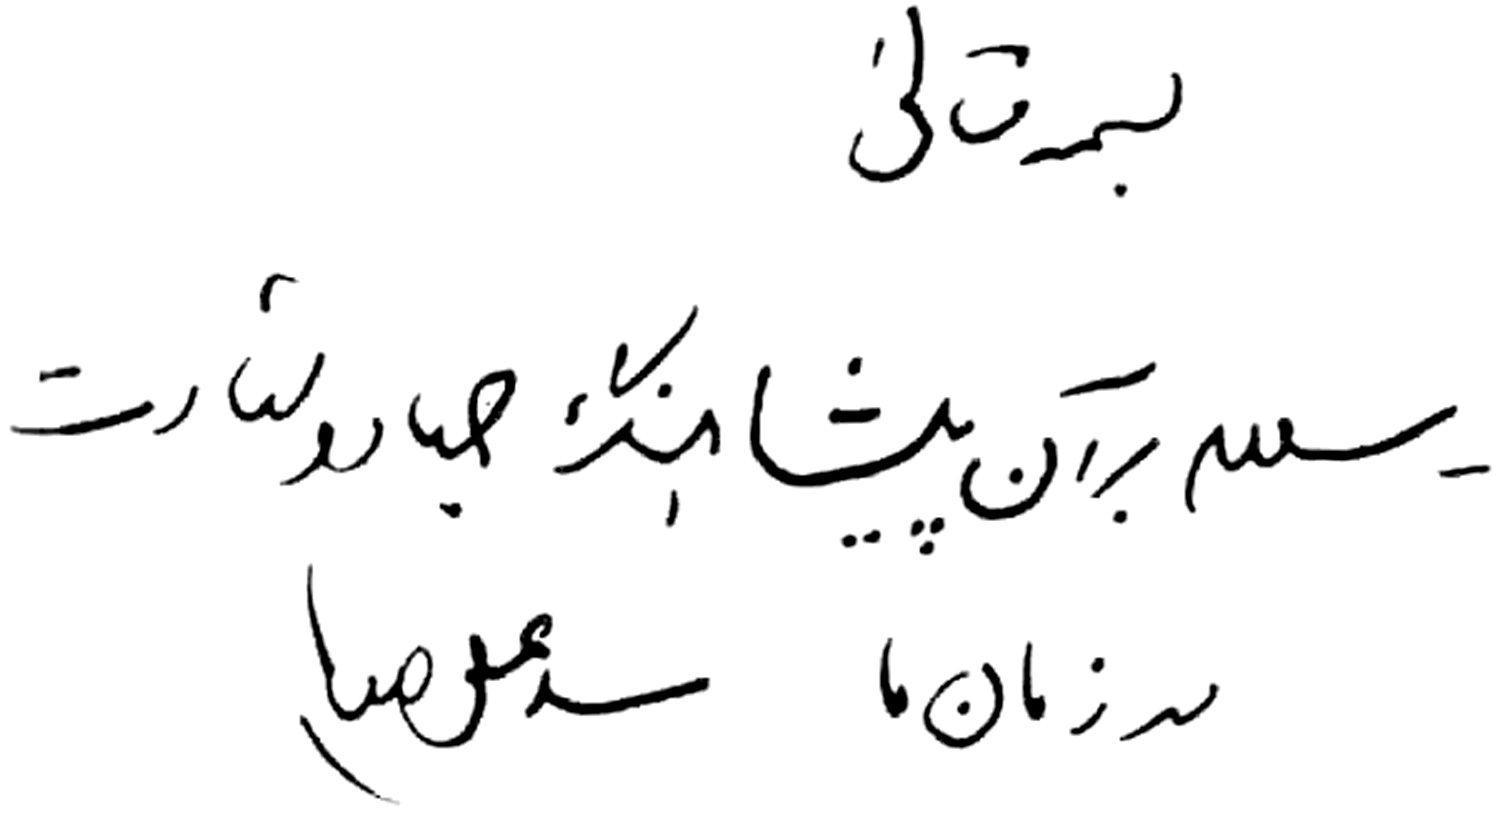 بسمه تعالی
- سلام بر آن پیشاهنگ جهاد و شهادت
در زمان ما سید علی